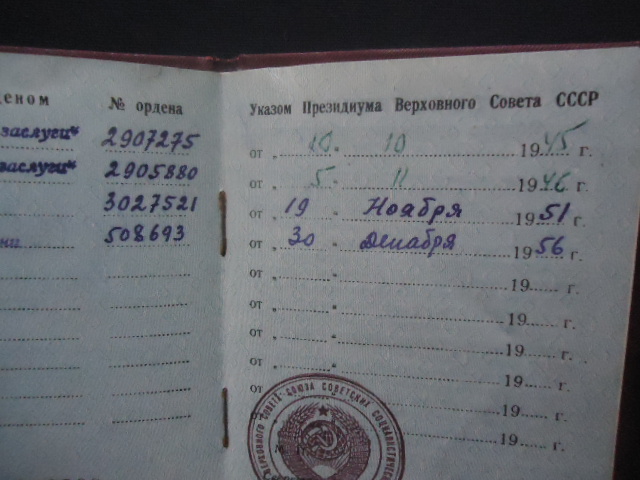 деном № ордена Указом Президиума Верховного Совета СССР
заслуги" 2907275 от „ 10 " 10 1945 г.
заслуги" 2905880 от „ 5 " 11 1946 г.
3027521 от „ 19 " Ноября 1951 г.
508693 от „ 30 " Декабря 1956 г.
от „ " 19 г.
от „ " 19 г.
от „ " 19 г.
от „ " 19 г.
от „ 19 г.
19 г.
ВЕРХОВНОГО СОВЕТА СОЮЗА СОВЕТСКИХ СОЦИАЛИСТИЧЕСК